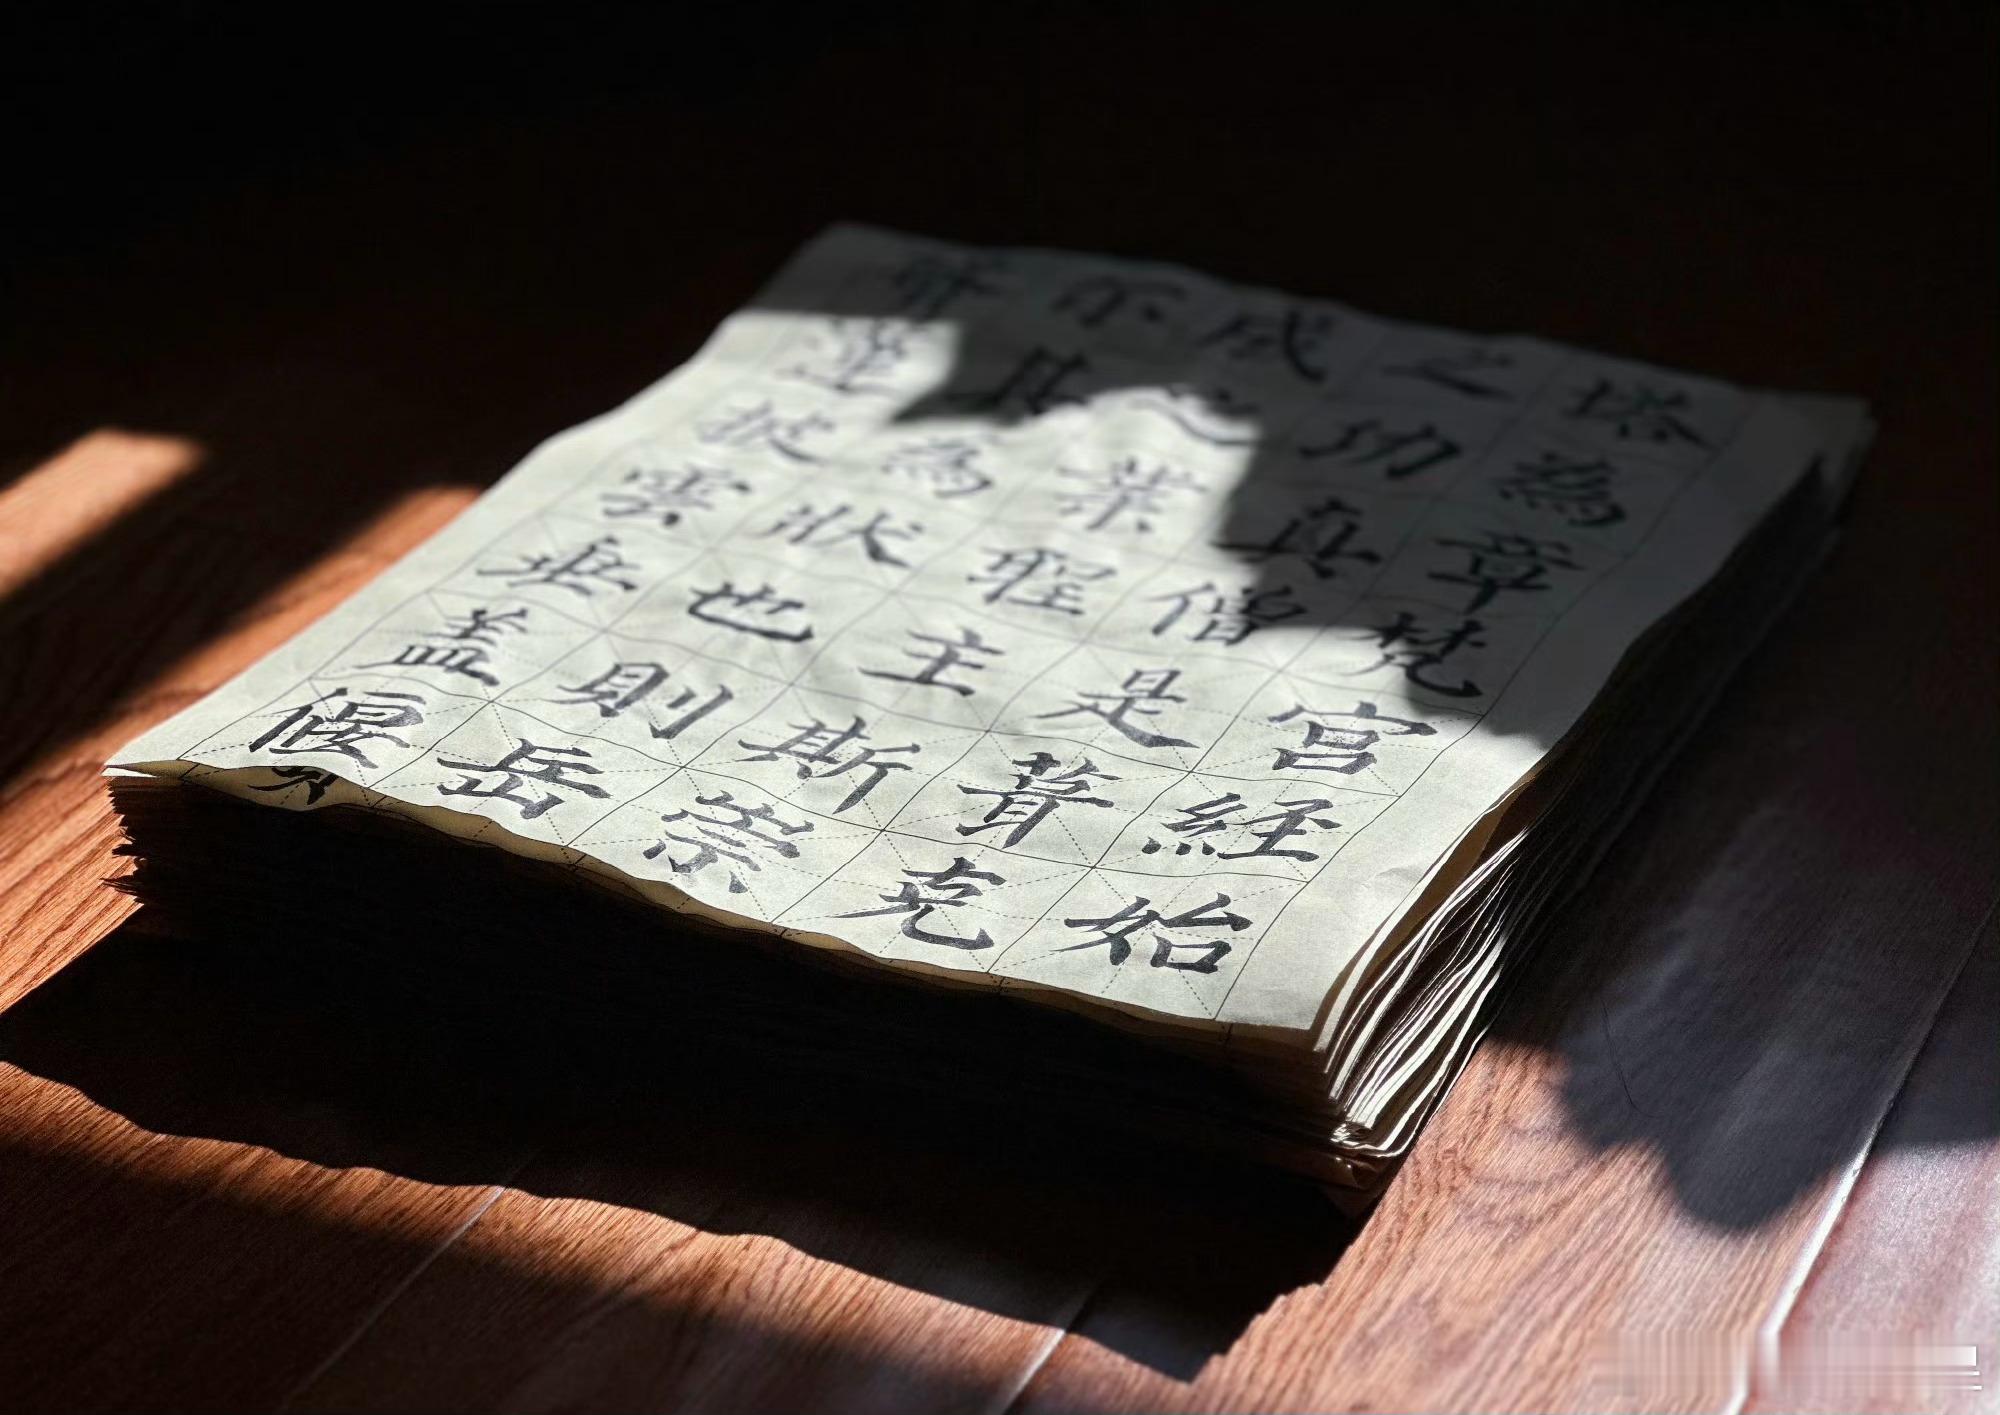 塔為章梵宫経始
之功真僧是葺克
成之業聖主斯崇
尔其為狀也則岳
聳蓮披雲垂盖偃